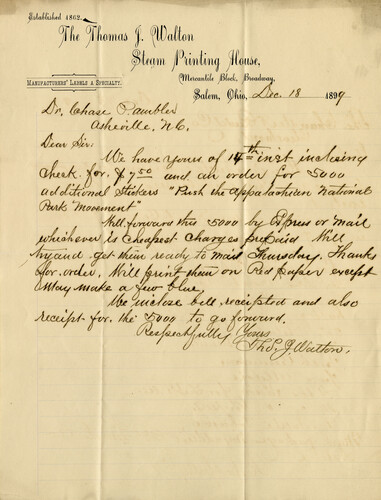 Established 1862.
The Thomas J. Walton
Steam Printing House,
Manufacturers' Labels a Specialty.
Mercantile Block, Broadway,
Salem, Ohio, Dec. 18 1899
Dr. Chase P. Ambler
Asheville, N.C.
Dear Sir.
We have yours of 14th inst inclosing
Check for $7.50 and an order for 5000
additional Stickers "Push the Appalachian National
Park Movement"
Will forward this 5000 by Express or mail
whichever is Cheapest Charges prepaid Will
try and get them ready to mail Thursday. Thanks
for order. Will print them on Red paper except
May make a few blue.
We inclose bill receipted and also
receipt for the 5000 to go forward.
Respectfully Yours
Thos. J. Walton.